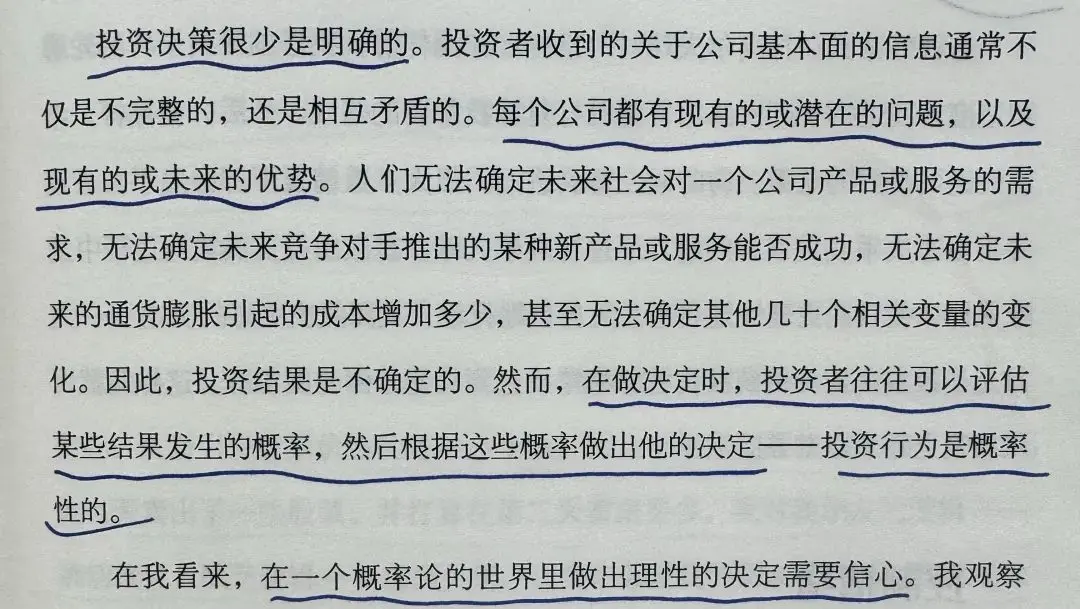 投资决策很少是明确的。投资者收到的关于公司基本面的信息通常不
仅是不完整的，还是相互矛盾的。每个公司都有现有的或潜在的问题，以及
现有的或未来的优势。人们无法确定未来社会对一个公司产品或服务的需
求，无法确定未来竞争对手推出的某种新产品或服务能否成功，无法确定未
来的通货膨胀引起的成本增加多少，甚至无法确定其他几十个相关变量的变
化。因此，投资结果是不确定的。然而，在做决定时，投资者往往可以评估
某些结果发生的概率，然后根据这些概率做出他的决定——投资行为是概率
性的。
在我看来，在一个概率论的世界里做出理性的决定需要信心。我观察